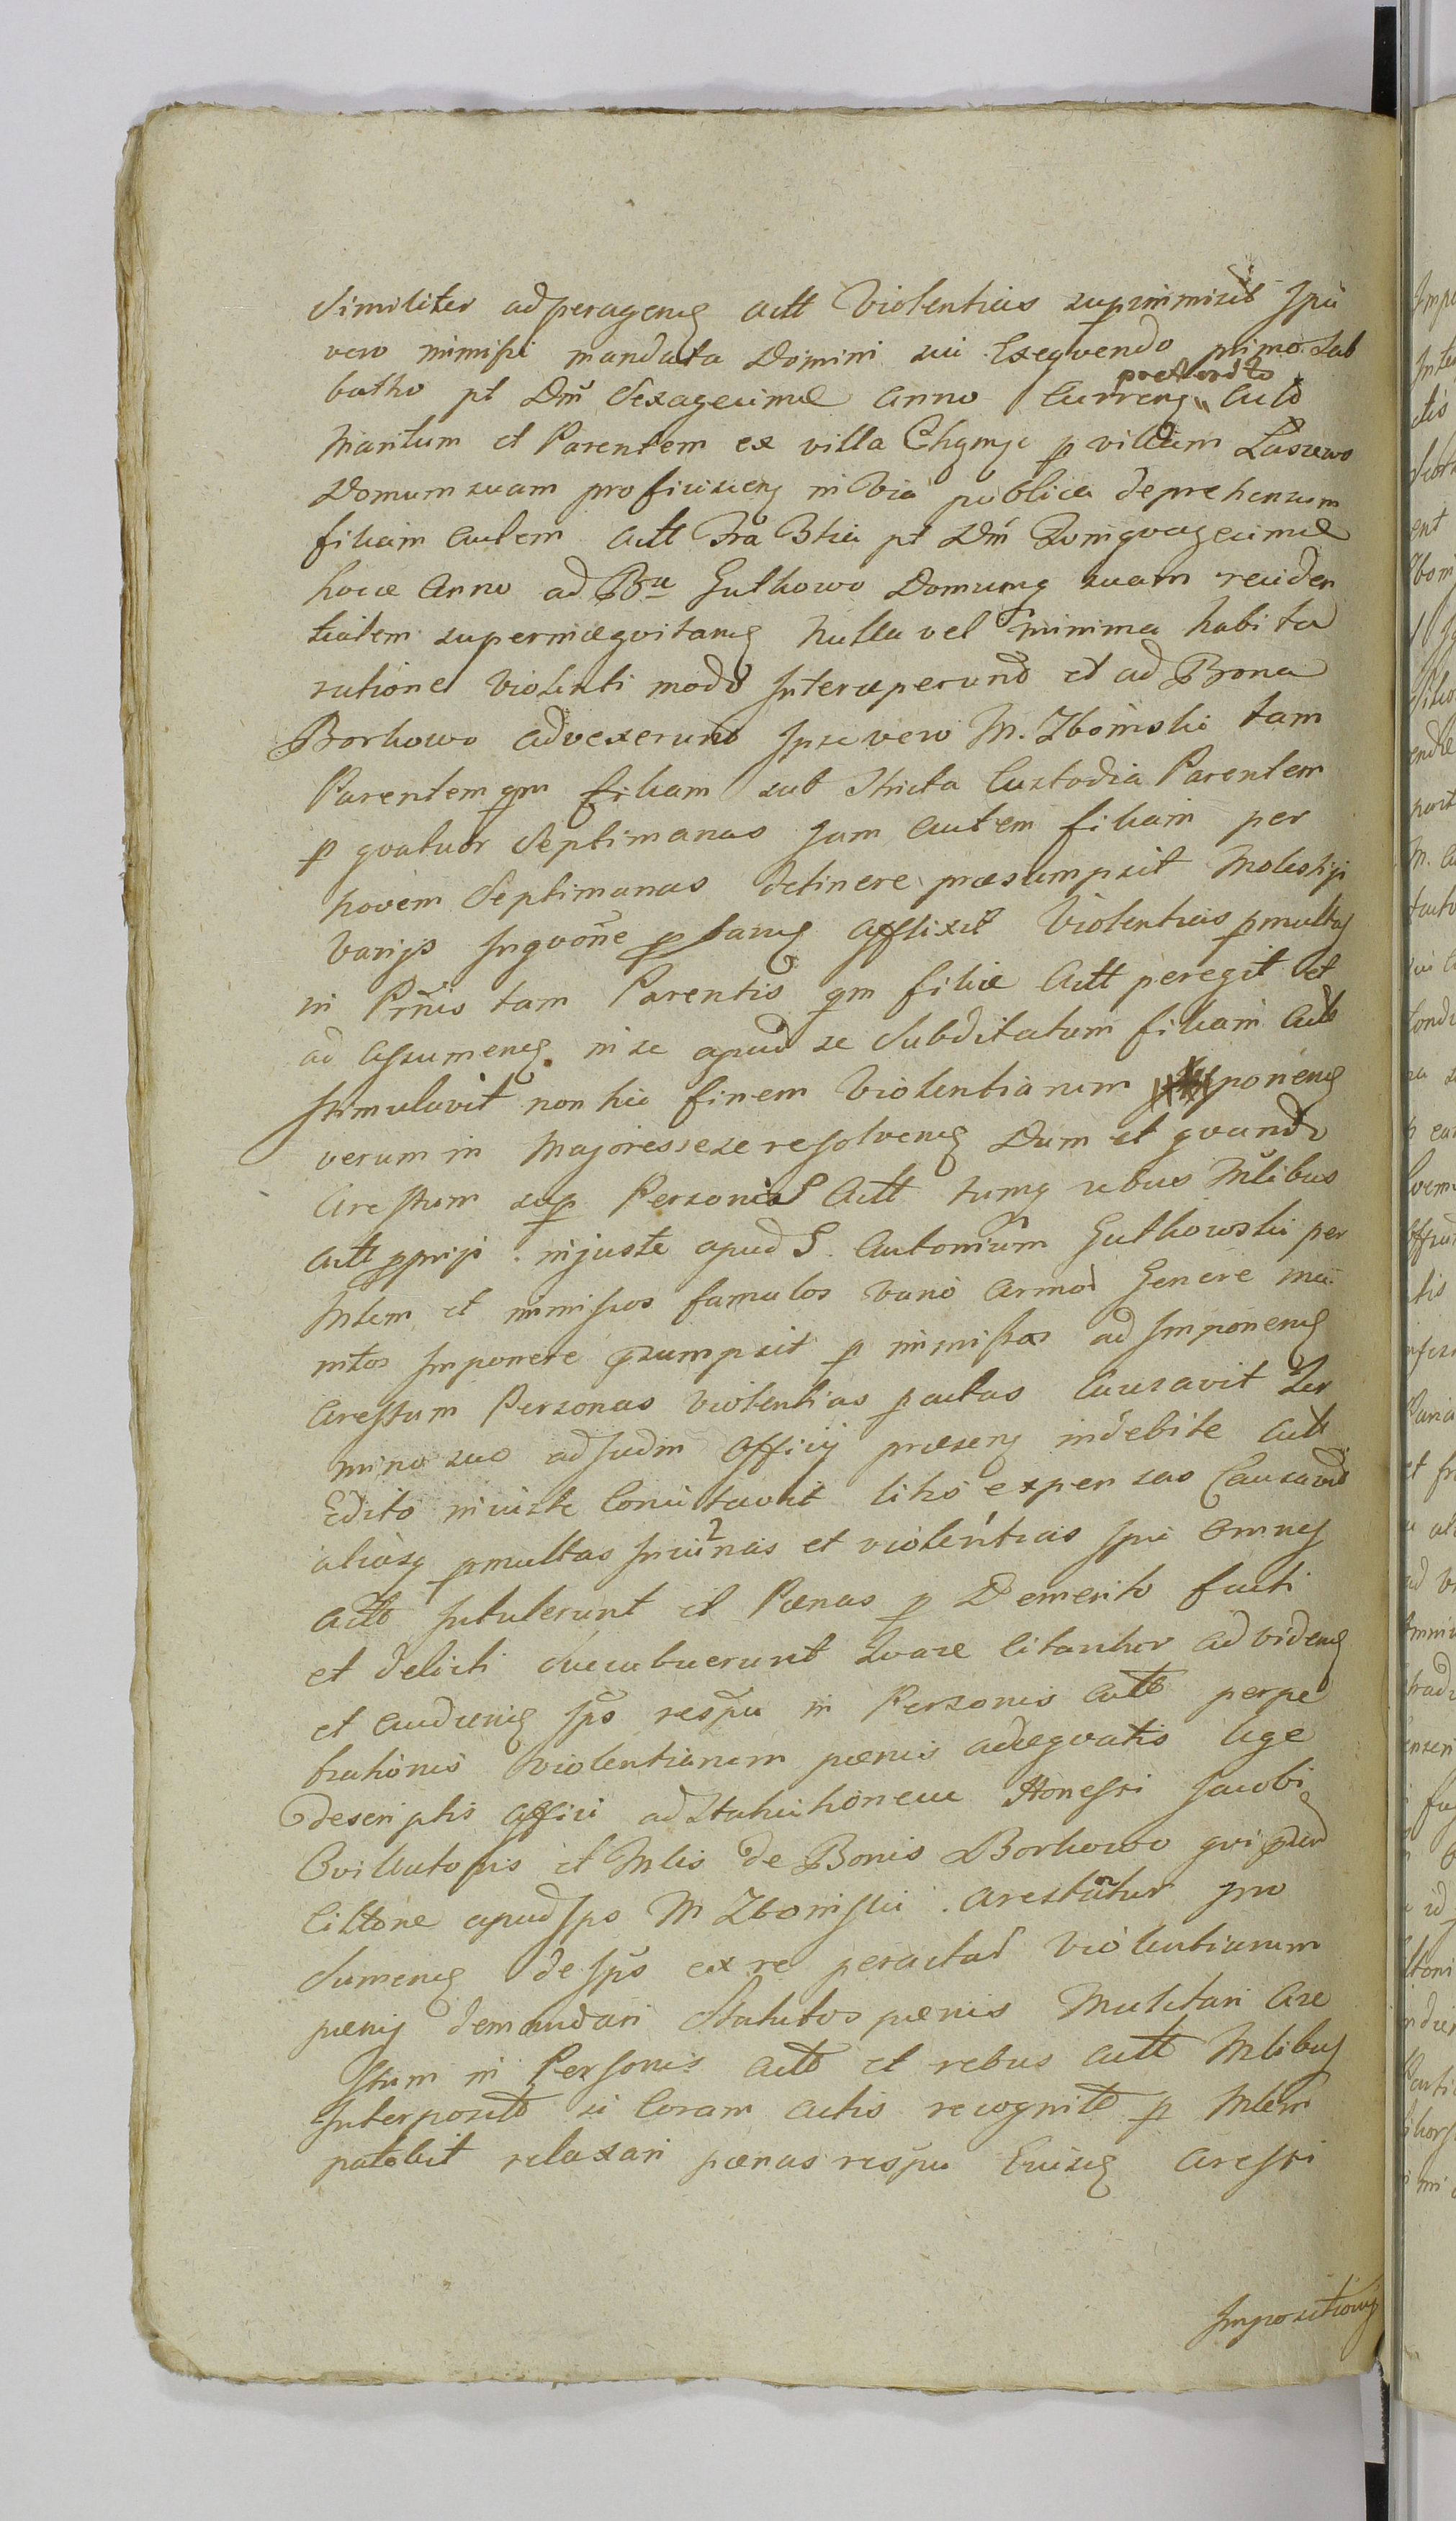 Similiter ad peragenđ actt Violentias supimmisit Ipsi
vero immissi mandata Domini sui Exeqvendo primo Sab
batho pt Dm̃ Sexagesimæ Anno Curren̄ preterito Acto
Maritum et Parentem ex villa Chgmje p villam Laszewo
Domum suam proficiscen̄ in Via publica deprehensum
filiam autem Actt Fra 3tia pt Dm̃ Qvinqvagesimæ
hocce Anno ad Bna Gutkowo Domumq suam residen
tialem supermæqvitanđ Nulla vel minima habita
ratione Violenti modo Interceperunt et ad Bona
Borkowo advexerunt Ipse vero M. Zboinski tam
Parentem qm filiam sub stricta Custodia Parentem
p qvatuor Septimanas Jam autem filiam per
novem Septimanas detinere præsumpsit Molestijs
Varijs Inqvõne p sanđ afflixit Violentias pmultas
in Prñis tam Parentis qm filiæ Actt peregit et
ad Assumenđ in se apud se Subditatum filiam Acto
stimulavit non hic finem Violentiarum ponenđ
verum in Majores sese resolvenđ Dum et qvando
Arestum sup Personas Actt tumq rebus Mlibus
Actt pprijs injuste apud G. Antonium Gutkowski per
Mlem et immissos famulos Vario Armor Genere mu
nitos Imponere præsumpsit p immissos ad Imponenđ
Arestum Personas Violentias pactas Causavit Ter
mino suo ad Judm Officij præsen̄ indebite Actt
Edito iniuste Concitavit litis expensas Causavit
aliasq pmultas Iniurias et violentias Ipsi Omnes
Acto Intulerunt et Pœnas p Demerito facti
et delicti Succubuerunt Qvare Citantur ad videnđ
et audienđ Ipõs respu in Personis Acto perpe
trationis Violentiarum pœnis adæqvatis lege
descriptis affici ad Statuitionem Honesti Jacobi
Ovilutoris et Mlis de Bonis Borkowo qvi pnd
Cittone apud Ipõ M Zboinski arestantur pro
Sumenđ de Ipõs ex re peractar Violentiarum
pœnis demandari Statutor pœnis Mulctari Are
stum in Personis Acto et rebus Actt Mlibus
Interposito si Coram Actis recognito p Mlem
patebit relaxari pœnas respu Eiusđ Aresti
Impositionis